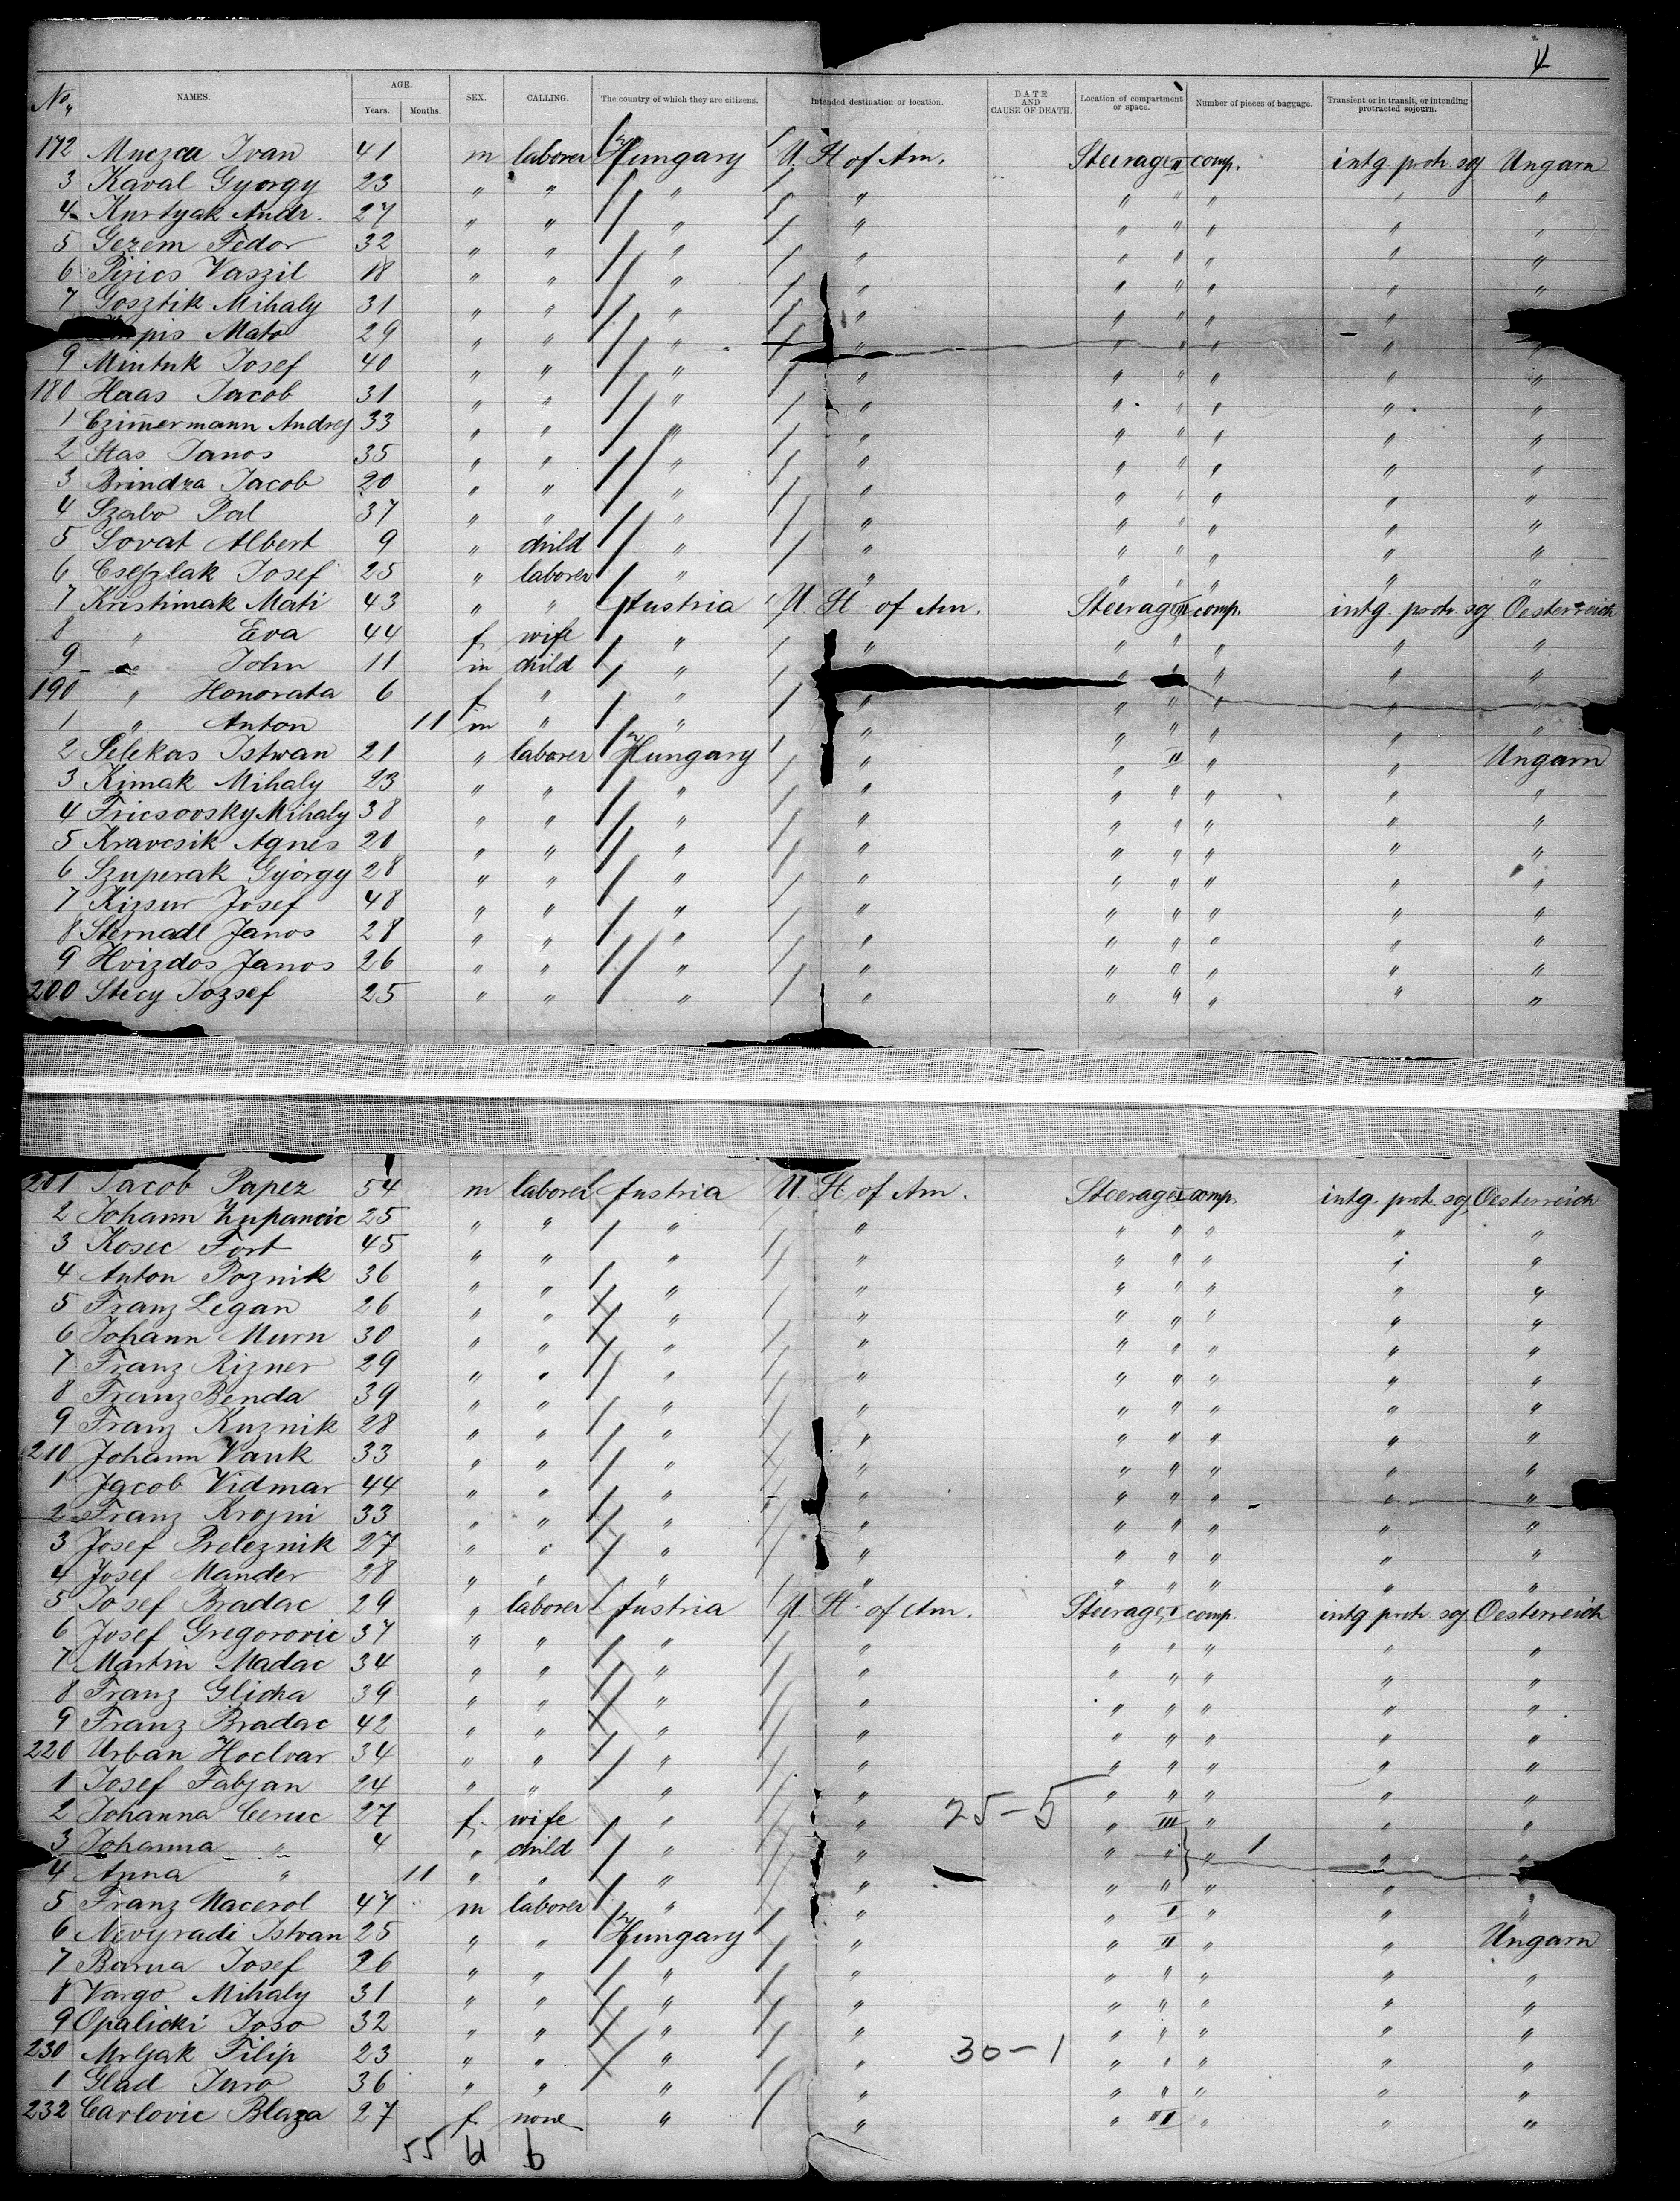 4
No. NAMES. AGE. Years. Months. SEX. CALLING. The country of which they are citizens. Intended destination or location. DATE AND CAUSE OF DEATH. Location of compartment or space. Number of pieces of baggage. Transient or in transit, or intending protracted sojourn.
172 Muczca Ivan 41 m laborer Hungary U. St of Am. Steerage II comp. intg protr soj Ungarn
3 Kaval Gyorgy 23 " " " " " " " " "
4 Kurtyak Andr. 27 " " " " " " " " "
5 Gezem Fedor 32 " " " " " " " " "
6 Pirics Vaszil 18 " " " " " " " " "
7 Gosztik Mihaly 31 " " " " " " " " "
pis Mato 29 " " " " " " " " "
9 Mintuk Josef 40 " " " " " " " " "
180 Haas Jacob 31 " " " " " " " " "
1 Czimermann Andrej 33 " " " " " " " " "
2 Stas Janos 35 " " " " " " " " "
3 Brindza Jacob 20 " " " " " " " " "
4 Szabo Pal 37 " " " " " " " " "
5 Sovat Albert 9 " child " " " " " " "
6 Cseszlak Josef 25 " laborer " " " " " " "
7 Kristimak Mati 43 " " Austria U. St of Am. Steerage III comp. intg. protr. soj Oesterreich
8 " Eva 44 f wife " " " " " " "
9 " John 11 m child " " " " " " "
190 " Honorata 6 f " " " " " " " "
1 " Anton 11 m " " " " " " " "
2 Selekas Istwan 21 " laborer Hungary " " II " " Ungarn
3 Kimak Mihaly 23 " " " " " " " " "
4 Fricsovsky Mihaly 38 " " " " " " " " "
5 Kravcsik Agnes 20 " " " " " " " " "
6 Szuperak György 28 " " " " " " " " "
7 Kizsur Josef 48 " " " " " " " " "
8 Sternadl Janos 28 " " " " " " " " "
9 Hvizdos Janos 26 " " " " " " " " "
200 Stecy Jozsef 25 " " " " " " " " "
201 Jacob Papez 54 m laborer Austria U. St of Am. Steerage I comp. intg. prot. soj Oesterreich
2 Johann Zupancic 25 " " " " " " " " "
3 Kosec Fort 45 " " " " " " " " "
4 Anton Poznik 36 " " " " " " " " "
5 Franz Legan 26 " " " " " " " " "
6 Johann Murn 30 " " " " " " " " "
7 Franz Rizner 29 " " " " " " " " "
8 Franz Benda 39 " " " " " " " " "
9 Franz Kuznik 28 " " " " " " " " "
210 Johann Vauk 33 " " " " " " " " "
1 Jacob Vidmar 44 " " " " " " " " "
2 Franz Krojni 33 " " " " " " " " "
3 Josef Preleznik 27 " " " " " " " " "
4 Josef Mander 28 " " " " " " " " "
5 Josef Bradac 29 " laborer Austria U. St of Am. Steerage I comp. intg protr soj Oesterreich
6 Josef Gregorovic 37 " " " " " " " " "
7 Martin Madac 34 " " " " " " " " "
8 Franz Glicha 39 " " " " " " " " "
9 Franz Bradac 42 " " " " " " " " "
220 Urban Hoclvar 34 " " " " " " " " "
1 Josef Fabjan 24 " " " " " " " " "
2 Johanna Ceruc 27 f. wife " " 25-5 " III " " "
3 Johanna " 4 " child " " " " " 1 " "
4 Anna " 11 " " " " " " " " "
5 Franz Macerol 47 m laborer " " " I " " "
6 Nivyradi Istvan 25 " " Hungary " " II " " Ungarn
7 Barna Josef 26 " " " " " " " " "
8 Vargo Mihaly 31 " " " " " " " " "
9 Opalicki Joso 32 " " " " " " " " "
230 Mrljak Filip 23 " " " " 30-1 " " " " "
1 Glad Juro 36 " " " " " " " " "
232 Carlovic Blaza 27 f. none " " " III " " "